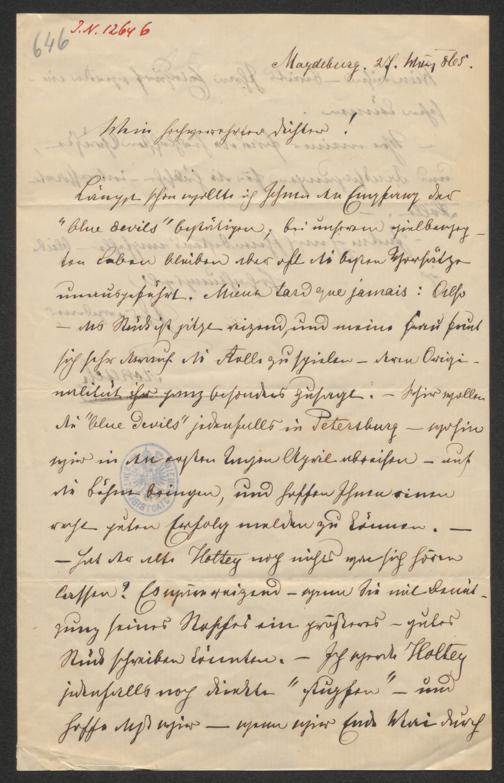 646
I.N. 12646
Magdeburg. 27. März 865.
Mein hochverehrter Dichter!
Längst schon wollte ich Ihnen den Empfang der
"blue devils" bestätigen, bei unserem vielbeweg-
ten Leben bleiben aber oft die besten Vorsätze
unausgeführt. Mieux tard que jamais: Also
– das Stück ist reizend und meine Frau freut
sich sehr darauf die Rolle zu spielen – deren Origi-
nalität ihr ganz besonders zusagt. – Wir wollen
die "blue devils" jedenfalls in Petersburg – wohin
wir in den ersten Tagen April abreisen – auf
die Bühne bringen, und hoffen Ihnen einen
recht guten Erfolg melden zu können. –
– Hat der alte Holtey noch nichts von sich hören
lassen? Es wäre reizend – wenn Sie mit Benüt-
zung seines Stoffes ein größeres – gutes
Stück schreiben könnten. – Ich werde Holtey
jedenfalls noch direkte " " – und
hoffe daß wir – wenn wir Ende Mai durch